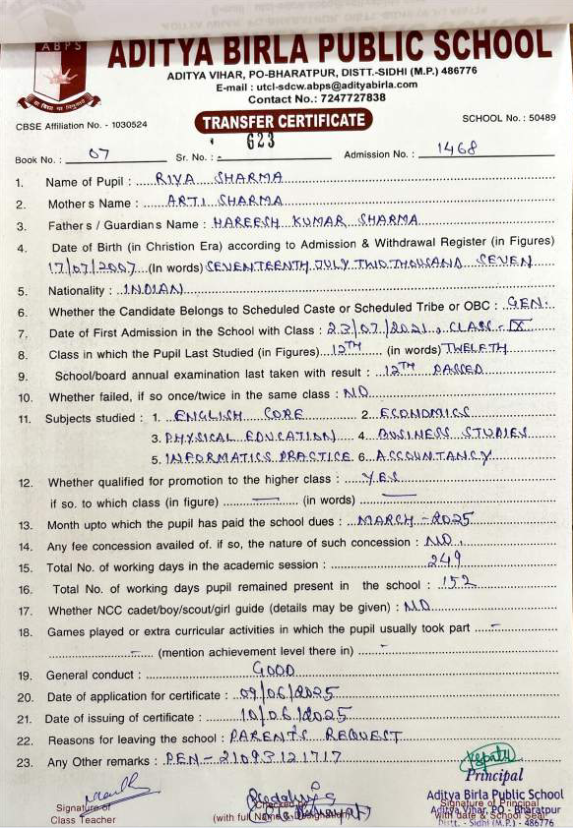 ABPS
ADITYA BIRLA PUBLIC SCHOOL
ADITYA VIHAR, PO-BHARATPUR, DISTT.-SIDHI (M.P.) 486776
E-mail : utcl-sdcw.abps@adityabirla.com
Contact No.: 7247727838
CBSE Affiliation No. - 1030524
TRANSFER CERTIFICATE
SCHOOL No. : 50489
Book No. : 07 Sr. No. : 623 Admission No. : 1468
1. Name of Pupil : RIYA SHARMA
2. Mother s Name : ARTI SHARMA
3. Father s / Guardian s Name : HAREESH KUMAR SHARMA
4. Date of Birth (in Christion Era) according to Admission & Withdrawal Register (in Figures)
17/07/2007 (In words) SEVENTEENTH JULY TWO THOUSAND SEVEN
5. Nationality : INDIAN
6. Whether the Candidate Belongs to Scheduled Caste or Scheduled Tribe or OBC : GEN.
7. Date of First Admission in the School with Class : 23/07/2021, CLASS - IX
8. Class in which the Pupil Last Studied (in Figures) 12TH (in words) TWELFTH
9. School/board annual examination last taken with result : 12TH PASSED
10. Whether failed, if so once/twice in the same class : NO
11. Subjects studied : 1. ENGLISH CORE 2. ECONOMICS
3. PHYSICAL EDUCATION 4. BUSINESS STUDIES
5. INFORMATICS PRACTICE 6. ACCOUNTANCY
12. Whether qualified for promotion to the higher class : YES
if so. to which class (in figure) — (in words) —
13. Month upto which the pupil has paid the school dues : MARCH - 2025
14. Any fee concession availed of. if so, the nature of such concession : NO.
15. Total No. of working days in the academic session : 249
16. Total No. of working days pupil remained present in the school : 152
17. Whether NCC cadet/boy/scout/girl guide (details may be given) : NO
18. Games played or extra curricular activities in which the pupil usually took part -
- (mention achievement level there in) -
19. General conduct : GOOD
20. Date of application for certificate : 09/06/2025
21. Date of issuing of certificate : 10/06/2025
22. Reasons for leaving the school : PARENT'S REQUEST
23. Any Other remarks : PEN - 21093121717
Principal
Aditya Birla Public School
Signature of Class Teacher
Checked by
(with full Name & Designation)
Signature of Principal
Aditya Vihar, PO - Bharatpur
with date & School Seal
Distt. - Sidhi (M.P.) - 486776